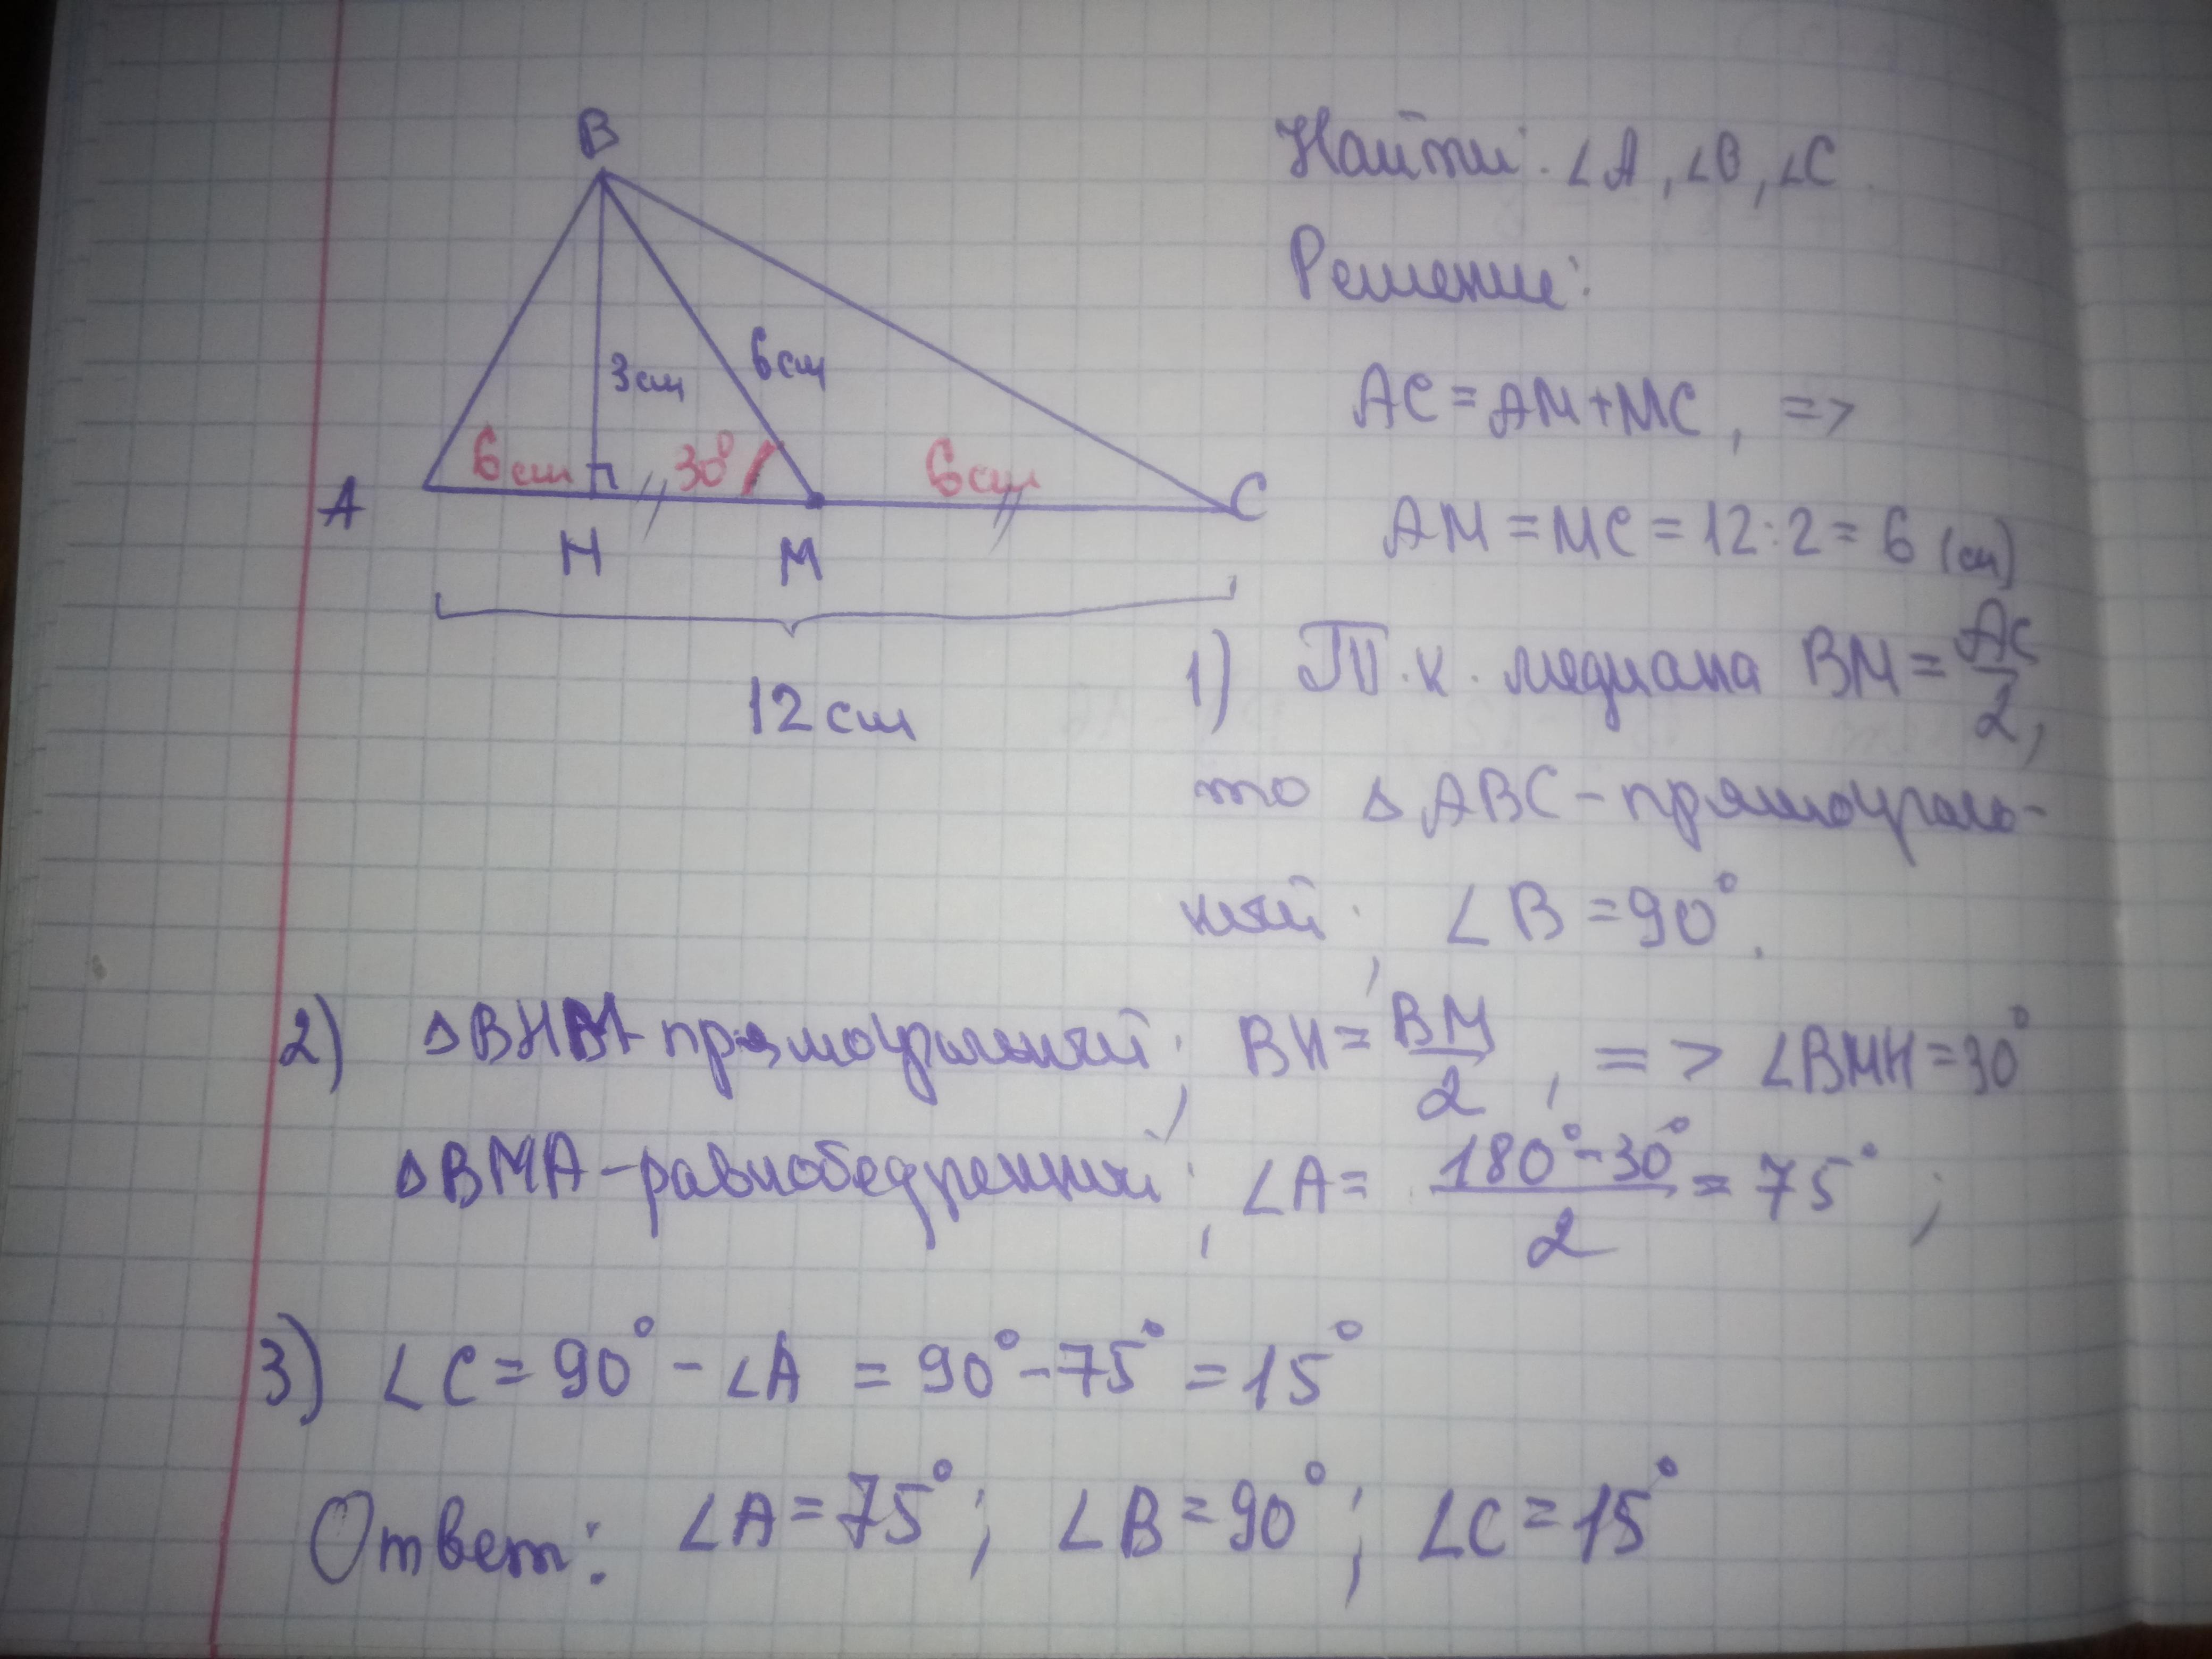 B
3см
6см
6см
30°
6см
A
H
M
C
12см
Найти: ∠A, ∠B, ∠C.
Решение:
AC = AM + MC, =>
AM = MC = 12:2 = 6 (см)
1) Т.к. медиана BM = AC/2,
то △ABC - прямоуголь-
ный; ∠B = 90°.
2) △BHM - прямоугольный; BH = BM/2, => ∠BMH = 30°
△BMA - равнобедренный; ∠A = (180° - 30°)/2 = 75°;
3) ∠C = 90° - ∠A = 90° - 75° = 15°
Ответ: ∠A = 75°; ∠B = 90°; ∠C = 15°